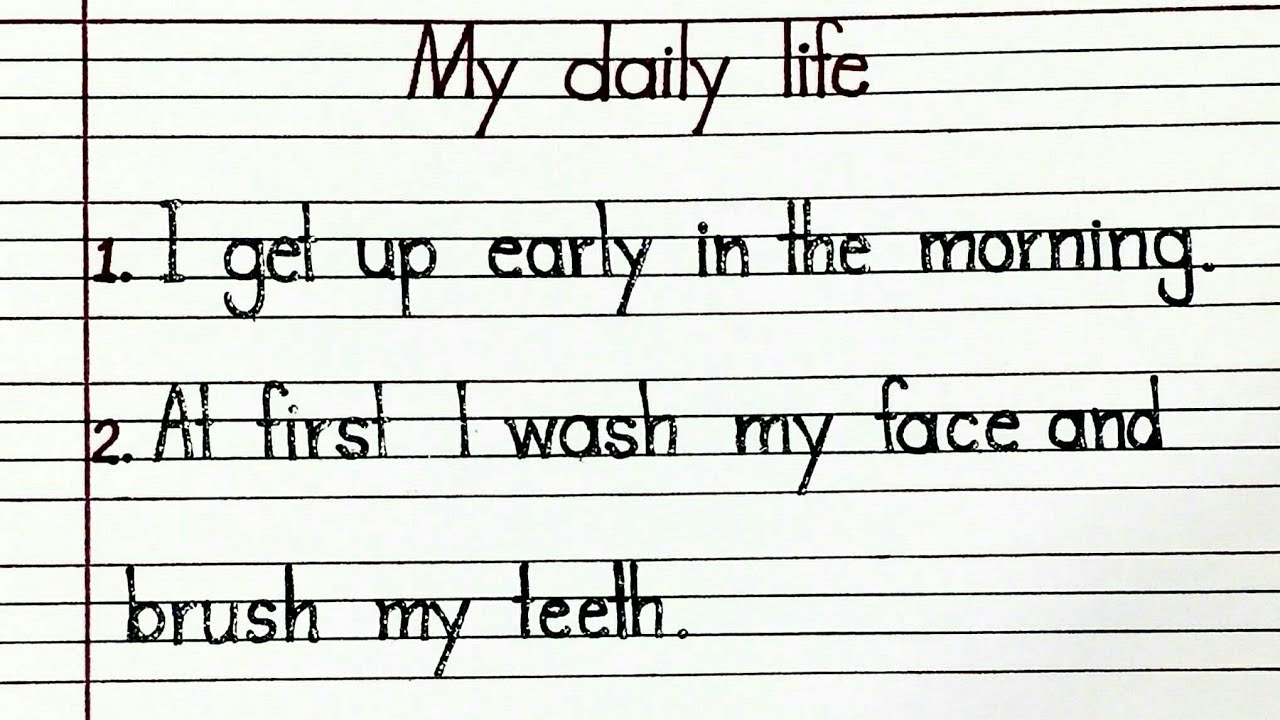 My daily life
1. I get up early in the morning.
2. At first I wash my face and
brush my teeth.